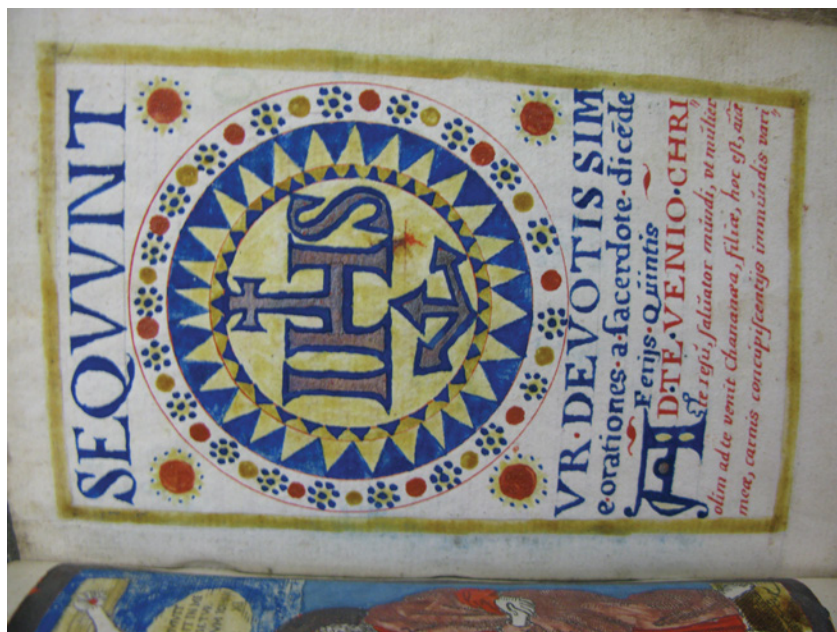 SEQVVNT
IHS
VR·DEVOTIS SIM
e·orationes·a·sacerdote·dicēde
Ferijs·Quintis
AD·TE·VENIO·CHRI
ste iesu, saluator mundi, vt mulier
olim ad te venit Chananæa, filiæ, hoc est, aīæ
meæ, carnis concupiscentijs immundis vari